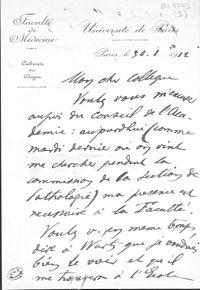 MS 5543
(5)
Faculté
de
Médecine
Université de Paris
Paris, le 30. 1 1912
Cabinet
du
Doyen
Mon cher Collègue
Voulez vous m'excuser
auprès du Conseil de l'Aca
démie : aujourd'hui (comme
mardi dernier où on vint
me chercher pendant la
commission de la section de
Pathologie) ma présence est
nécessaire à la Faculté.
Voulez v. en même temps
dire à Wurtz que je voudrais
bien le voir et qu'il
me trouvera à l'Ecole